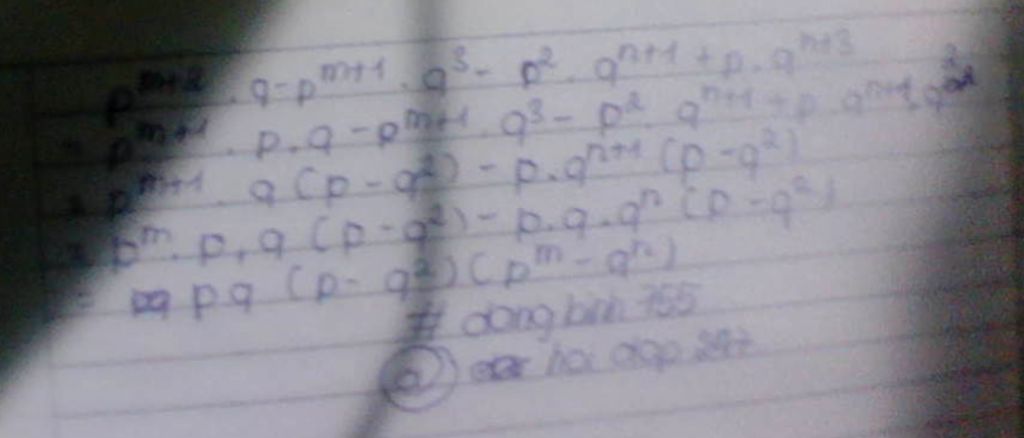 p^{m+2} . q - p^{m+1} . q^3 - p^2 . q^{n+1} + p . q^{n+3}
= p^{m+1} . p . q - p^{m+1} . q^3 - p^2 . q^{n+1} + p q^{n+1} . q^2
= p^{m+1} . q (p - q^2) - p . q^{n+1} (p - q^2)
= p^m . p . q (p - q^2) - p . q . q^n (p - q^2)
= pq (p - q^2) (p^m - q^n)
# dongbinh 755
@ hoi dap 247